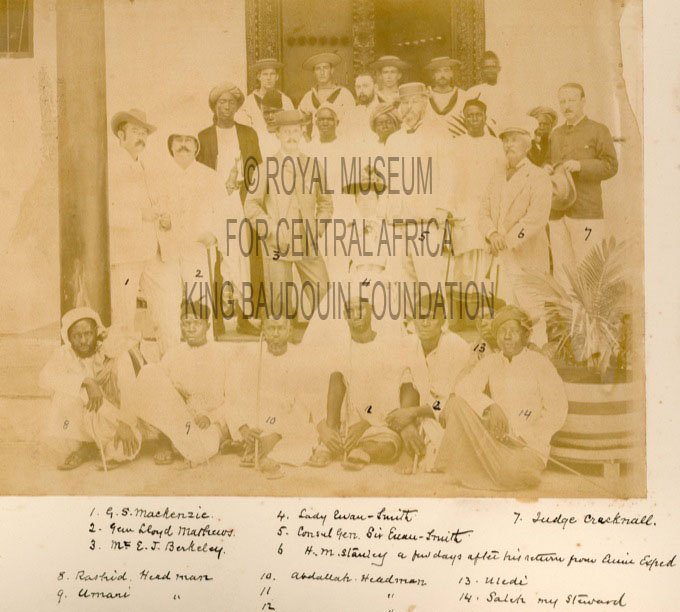 © ROYAL MUSEUM
FOR CENTRAL AFRICA
KING BAUDOUIN FOUNDATION
1
2
3
4
5
6
7
8
9
10
2
13
14
1. G. S. Mackenzie.
2 - Gen Lloyd Mathews.
3. Mr E. J. Berkeley.
4. Lady Euan-Smith
5. Consul Gen. Sir Euan-Smith
6 H. M. Stanley a few days after his return from Emin Exped
7. Judge Cracknall.
8. Rashid. Head man
9. Umari "
10. Abdallah. Headman
11 "
12 "
13. Uledi
14. Saleh my Steward